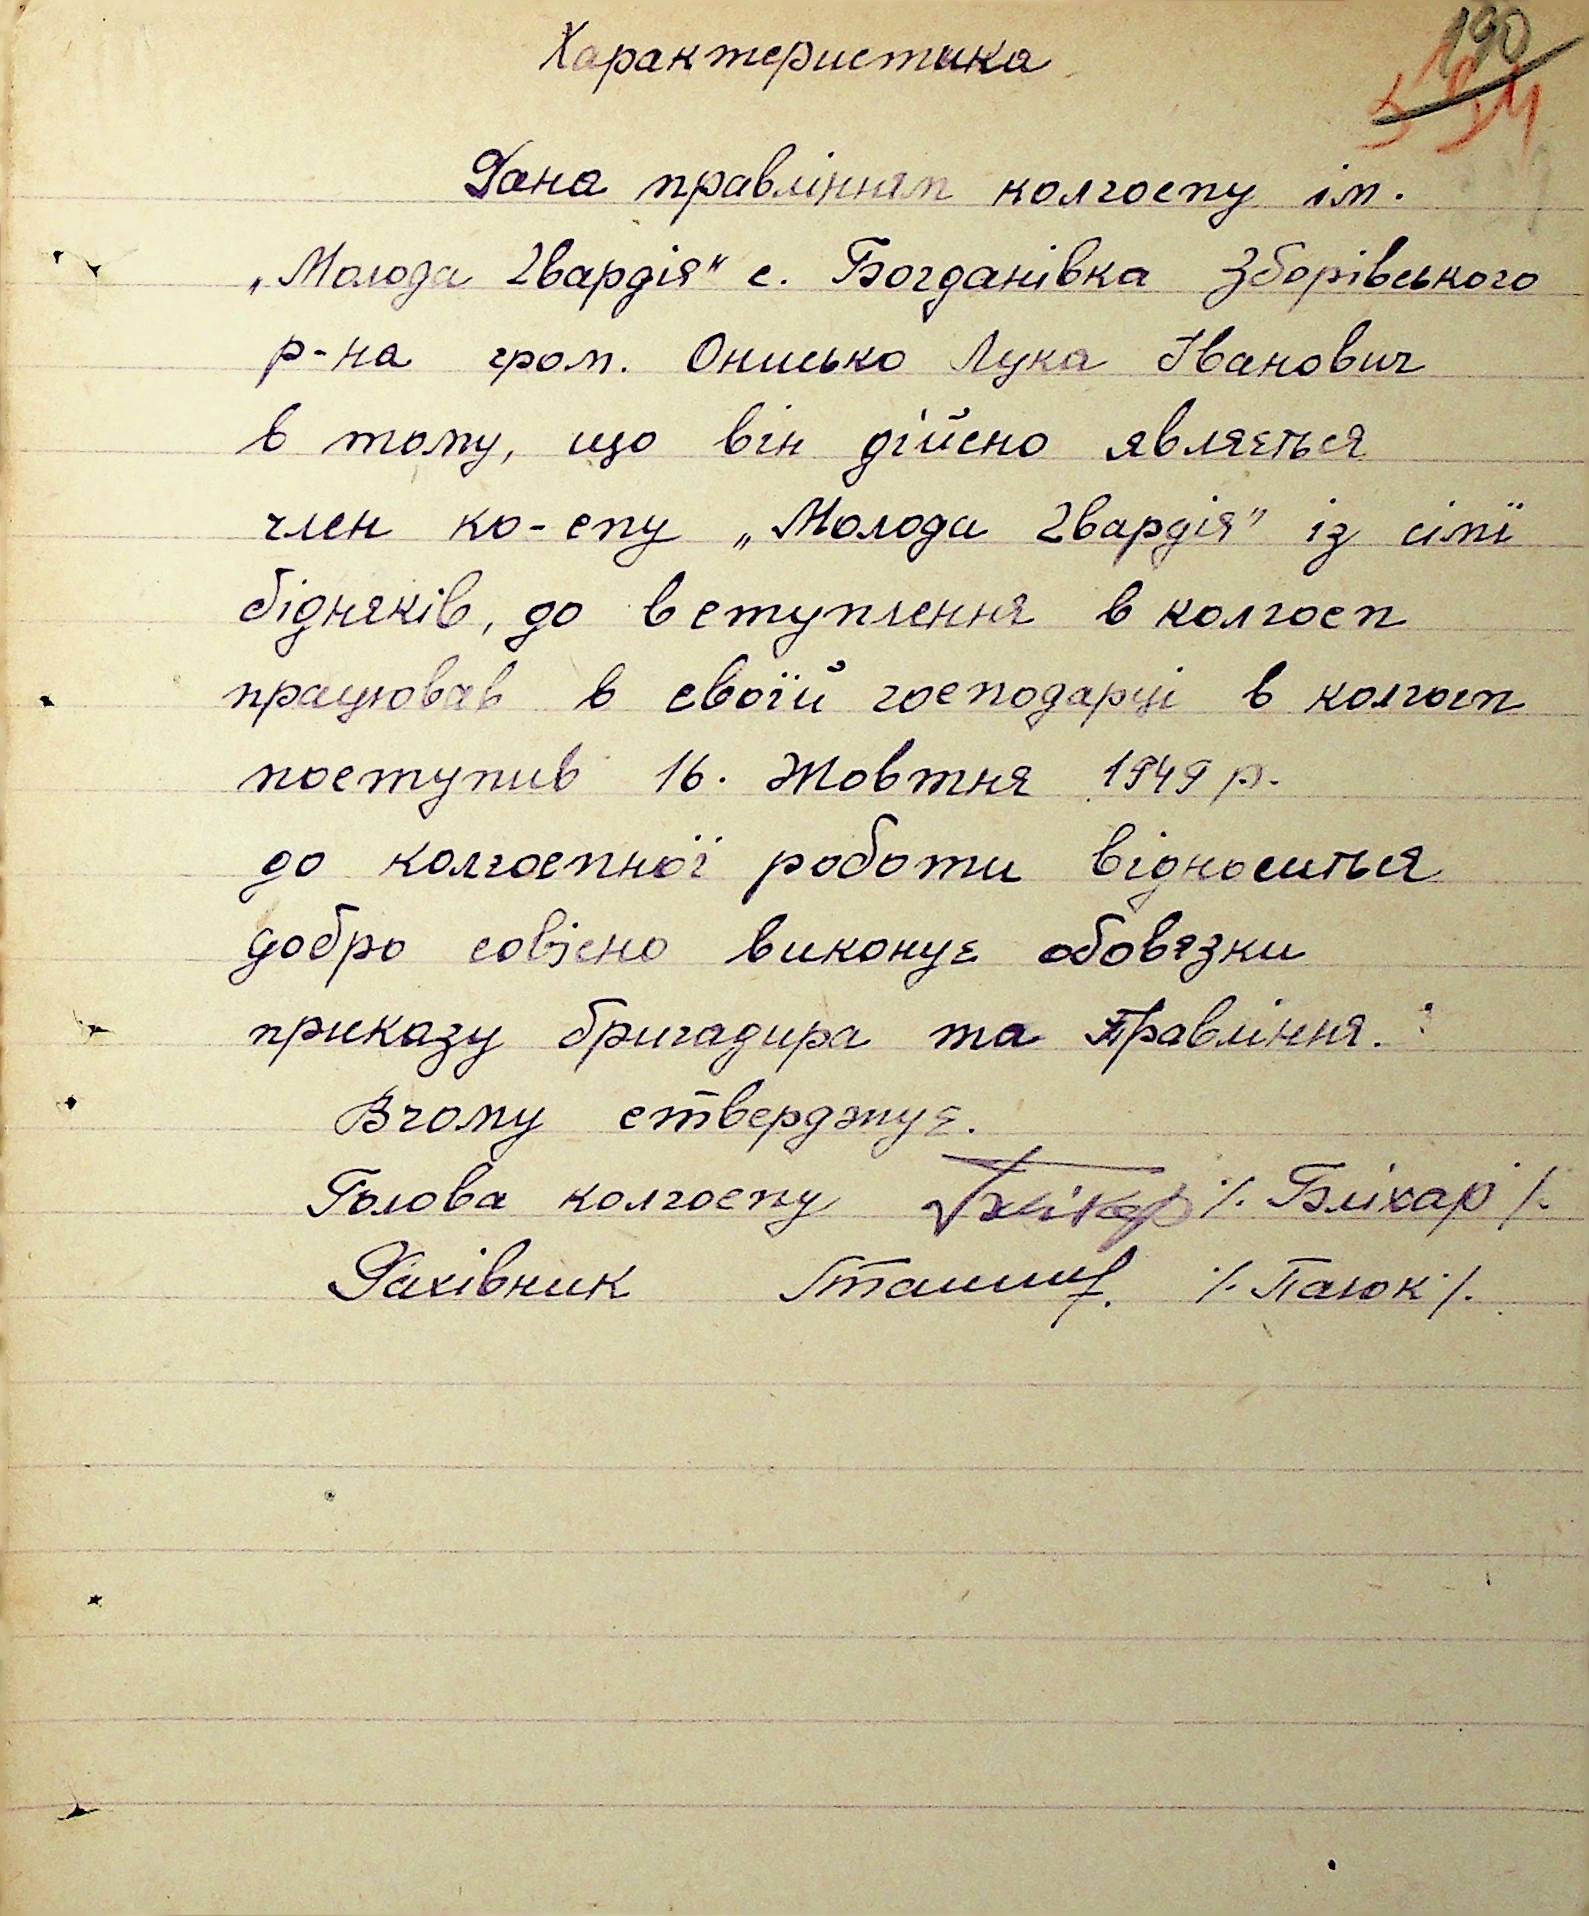 190
Характеристика
Дана правлінням колгоспу ім.
„Молода Гвардія" с. Богданівка Зборівського
р-на гром. Онисько Лука Іванович
в тому, що він дійсно являється
член ко-спу „Молода Гвардія" із сімї
бідняків, до вступлення в колгосп
працював в своїй господарці в колгосп
поступив 16. Жовтня 1949 р.
до колгоспної роботи відноситься
добро совісно виконує обовязки
приказу бригадира та Правління.
Вчому стверджує.
Голова колгоспу /. Бліхар /.
Рахівник /. Паюк /.